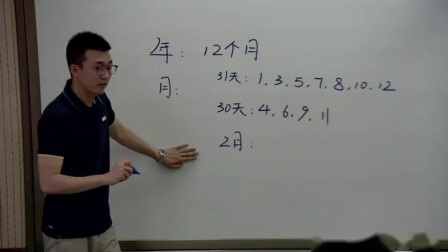 1年：12个月
月：31天：1、3、5、7、8、10、12
30天：4、6、9、11
2月：